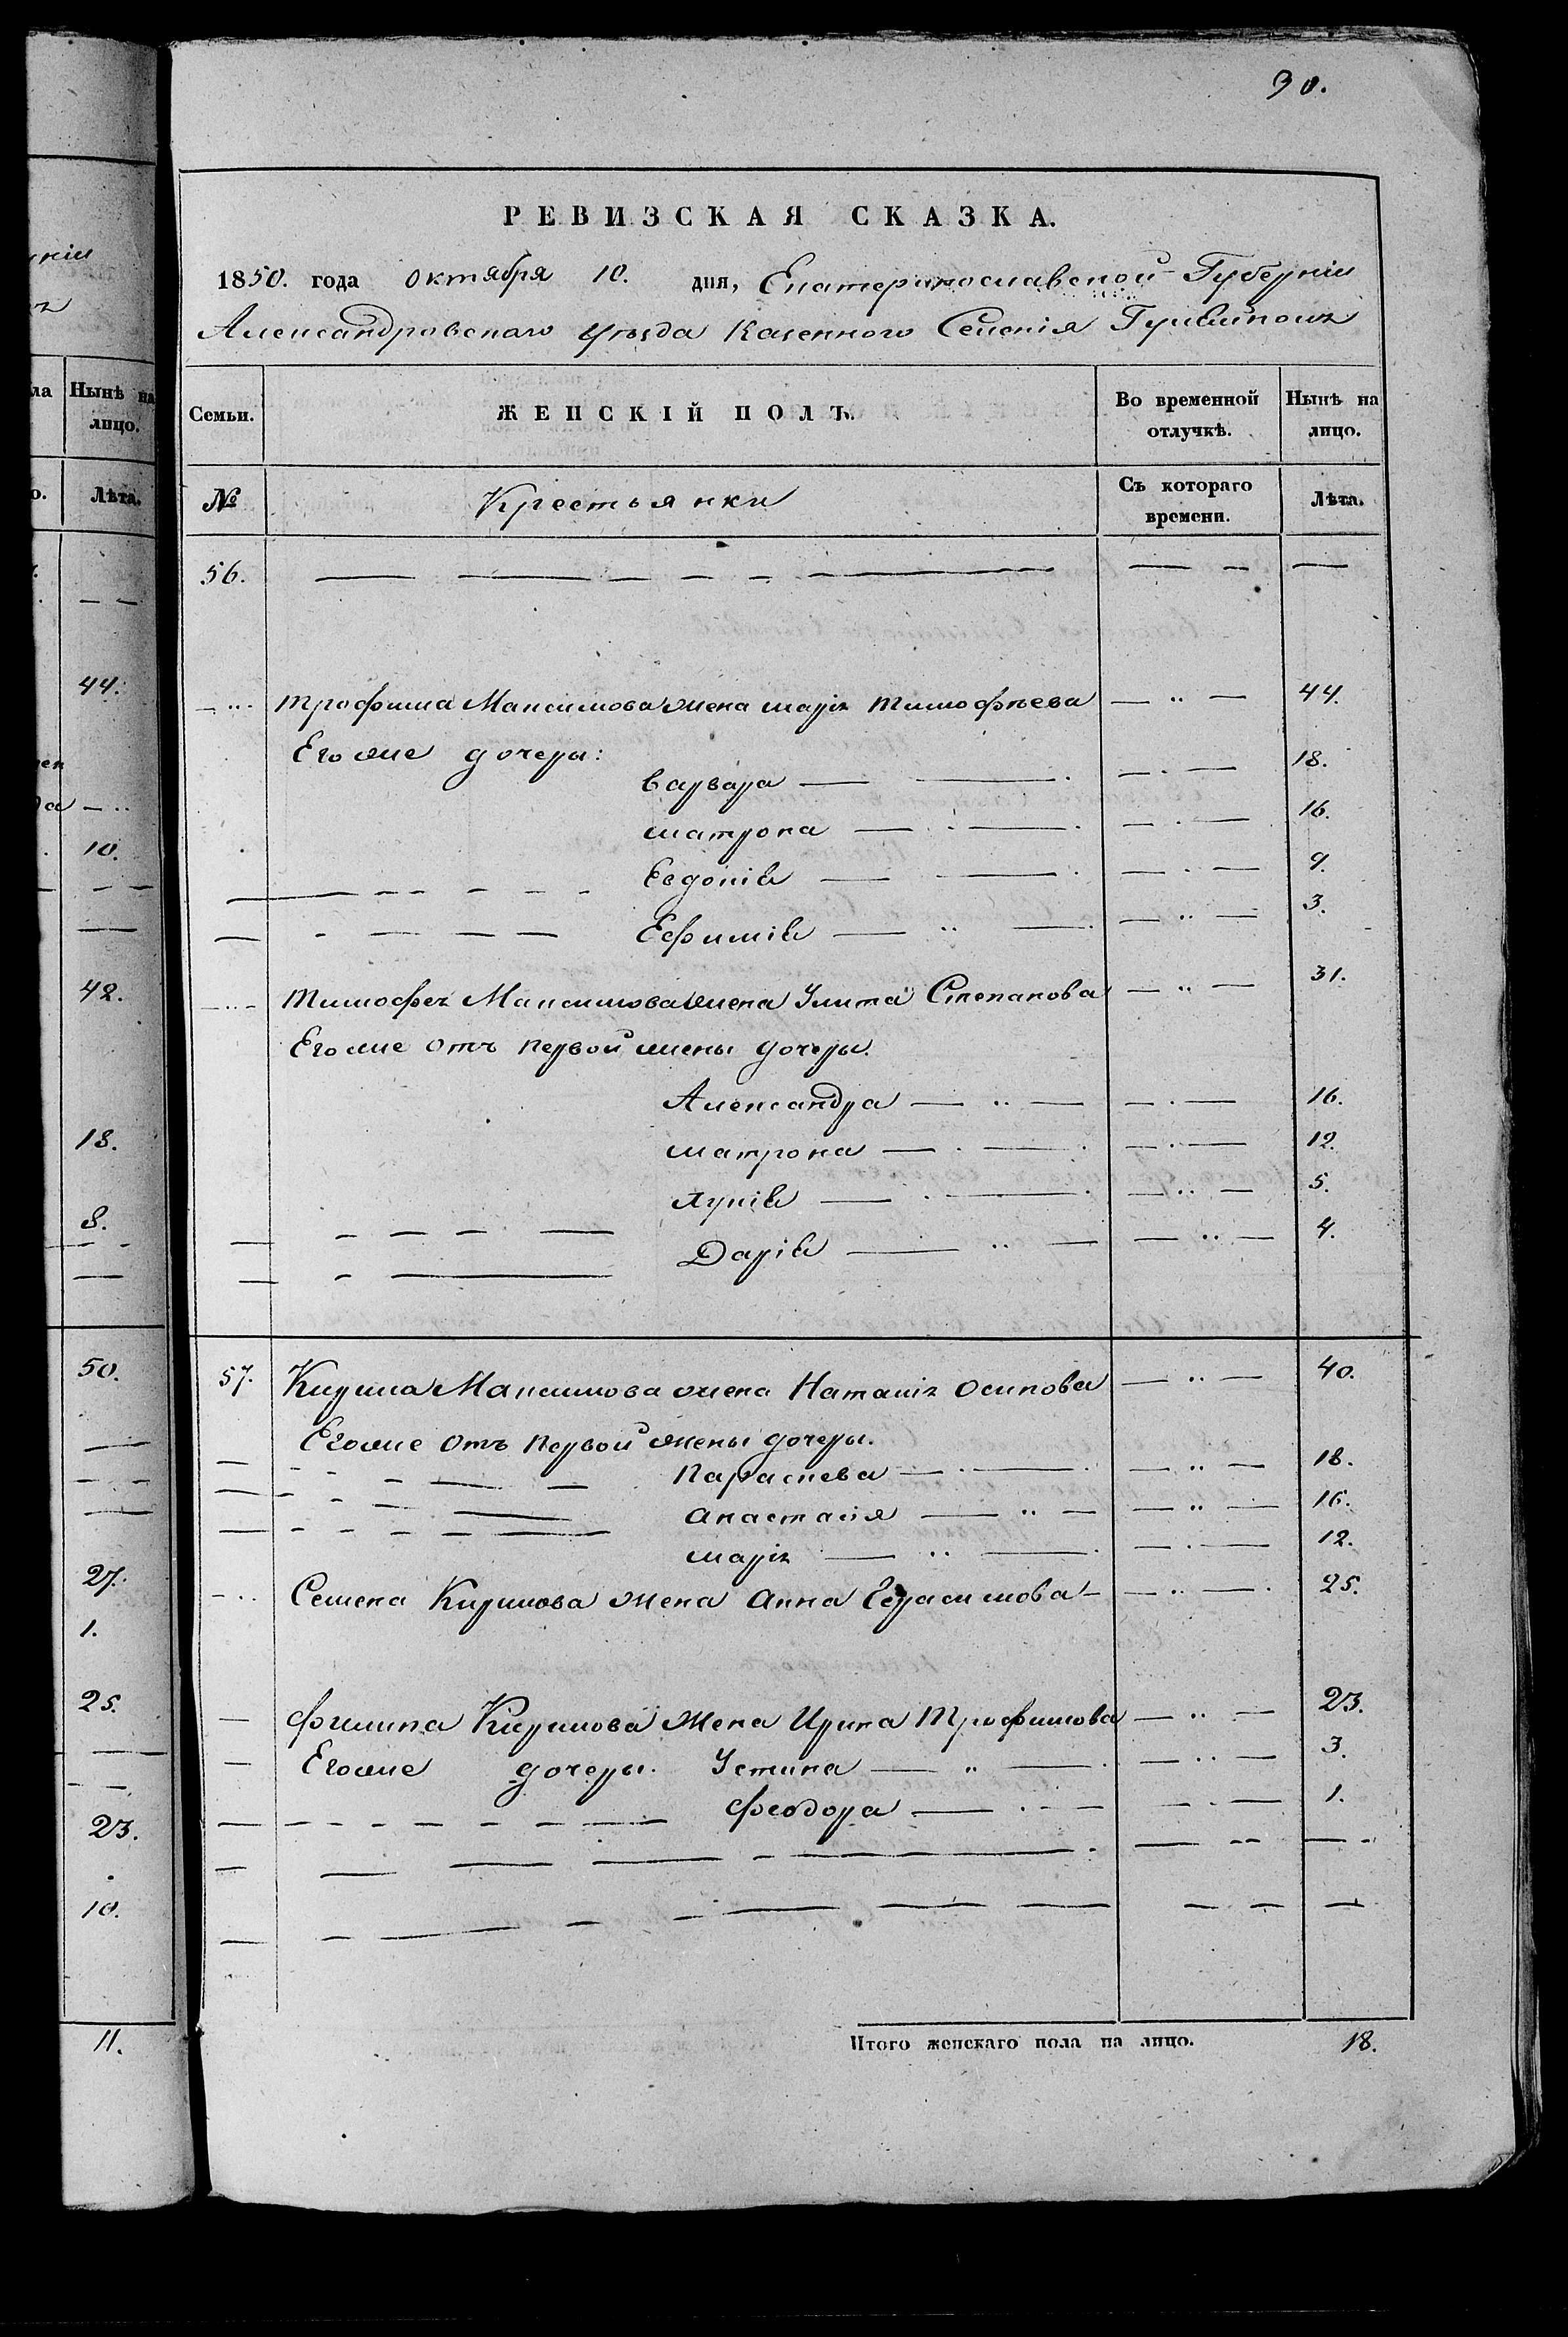 30.
РЕВИЗСКАЯ СКАЗКА.
1850. года октября 10. дня, Екатеринославской Губернии
Александровскаго уѣзда казенного Селенія Гуляйполя
Семьи. ЖЕНСКІЙ ПОЛЪ. Во временной отлучкѣ. Нынѣ на лицо.
№ Крестьянки Съ котораго времени. Лѣта.
56.
трофима Максимова жена марія тимофѣева 44.
Его же дочеры:
варвара 18.
матрона 16.
Евдокія 9.
Ефимія 3.
тимофея Максимова жена Улита Степанова 31.
Его же отъ первой жены дочеры.
Александра 16.
матрона 12.
лукія 5.
Дарія 4.
57. Кирила Максимова жена Наталія осипова 40.
Его же отъ первой жены дочеры.
Параскева 18.
анастасія 16.
марія 12.
Семена Кирилова жена анна Герасимова 25.
филипа Кирилова жена Ирина Трофимова 23.
Его же дочеры. Устина 3.
феодора 1.
Итого женскаго пола на лицо. 18.
Нынѣ на
лицо.
Лѣта.
44.
10.
42.
18.
8.
50.
27.
1.
25.
23.
10.
11.